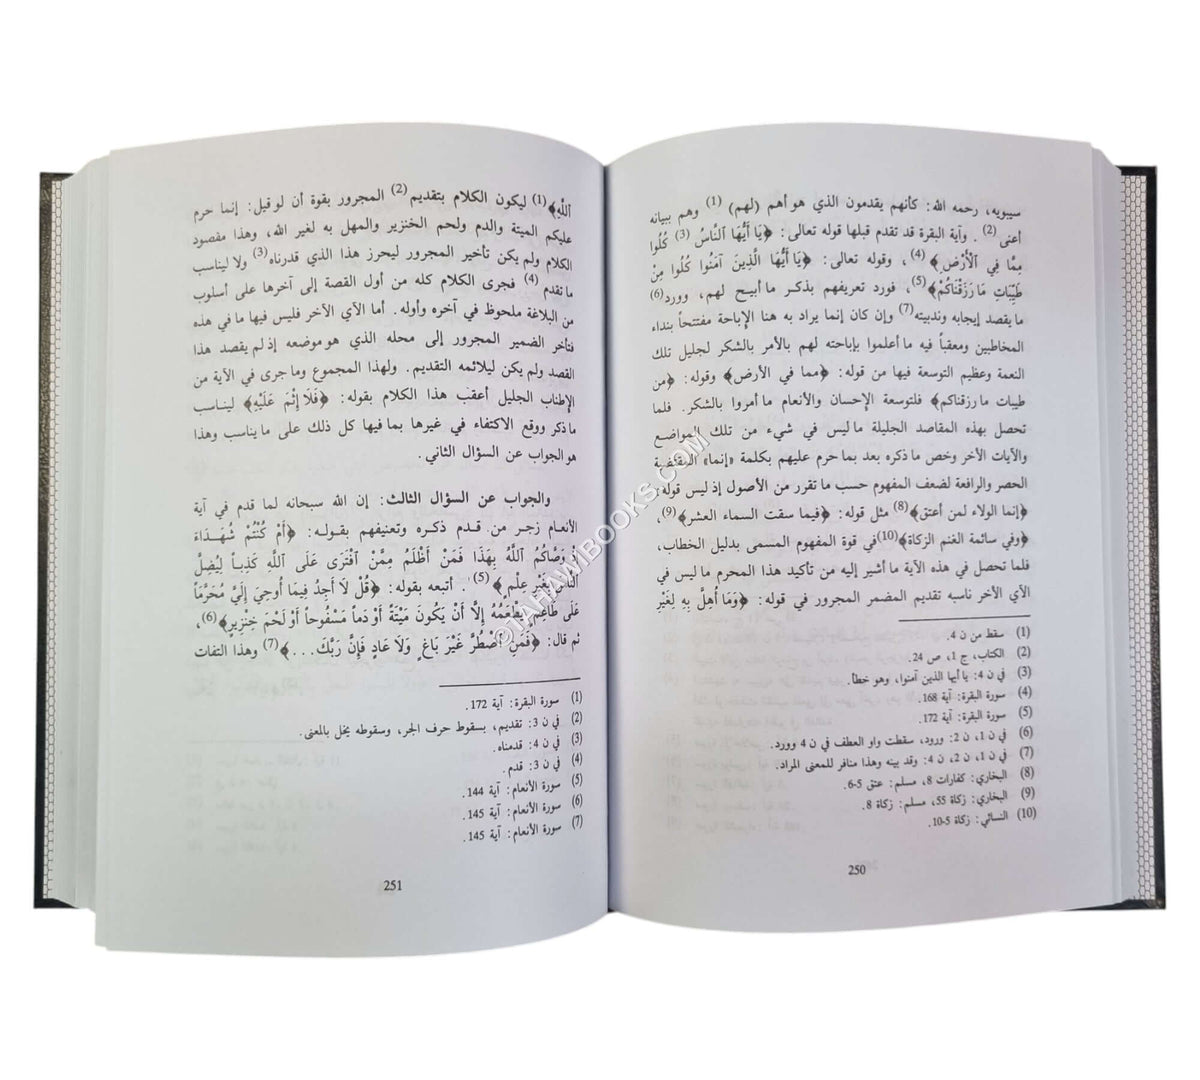 سيبويه، رحمه الله: كأنهم يقدمون الذي هو أهم (لهم) (1) وهم ببيانه
أعنى(2) . وآية البقرة قد تقدم قبلها قوله تعالى: ﴿يَا أَيُّهَا النَّاسُ (3) كُلُوا
مِمَّا فِي الْأَرْضِ﴾ (4) ، وقوله تعالى: ﴿يَا أَيُّهَا الَّذِينَ آمَنُوا كُلُوا مِنْ
طَيِّبَاتِ مَا رَزَقْنَاكُمْ﴾(5)، فورد تعريفهم بذكر ما أبيح لهم، وورد(6)
ما يقصد إيجابه وندبيته(7) وإن كان إنما يراد به هنا الإباحة مفتتحاً بنداء
المخاطبين ومعقباً فيه ما أعلموا بإباحته لهم بالأمر بالشكر لجليل تلك
النعمة وعظيم التوسعة فيها من قوله: ﴿مما في الأرض﴾ وقوله: ﴿من
طيبات ما رزقناكم﴾ فلتوسعة الإحسان والأنعام ما أمروا بالشكر. فلما
تحصل بهذه المقاصد الجليلة ما ليس في شيء من تلك المواضع
والآيات الأخر وخص ما ذكره بعد بما حرم عليهم بكلمة «إنما» المقتضية
الحصر والرافعة لضعف المفهوم حسب ما تقرر من الأصول إذ ليس قوله:
﴿إنما الولاء لمن أعتق﴾(8) مثل قوله: ﴿فيما سقت السماء العشر﴾(9)،
﴿وفي سائمة الغنم الزكاة﴾(10)في قوة المفهوم المسمى بدليل الخطاب،
فلما تحصل في هذه الآية ما أشير إليه من تأكيد هذا المحرم ما ليس في
الآي الآخر ناسبه تقديم المضمر المجرور في قوله: ﴿وَمَا أُهِلَّ بِهِ لِغَيْرِ
(1) سقط من ن 4.
(2) الكتاب، ج 1، ص 24.
(3) في ن 4: يا أيها الذين آمنوا، وهو خطأ.
(4) سورة البقرة: آية 168.
(5) سورة البقرة: آية 172.
(6) في ن 1، ن 2: ورود، سقطت واو العطف في ن 4 وورد.
(7) في ن 1، ن 2، ن 4: وقد بينه وهذا منافر للمعنى المراد.
(8) البخاري: كفارات 8، مسلم: عتق 5-6.
(9) البخاري: زكاة 55، مسلم: زكاة 8.
(10) النسائي: زكاة 5-10.
250
اللَّهِ﴾(1) ليكون الكلام بتقديم(2) المجرور بقوة أن لو قيل: إنما حرم
عليكم الميتة والدم ولحم الخنزير والمهل به لغير الله، وهذا مقصود
الكلام ولم يكن تأخير المجرور ليحرز هذا الذي قدرناه(3) ولا ليناسب
ما تقدم (4) فجرى الكلام كله من أول القصة إلى آخرها على أسلوب
من البلاغة ملحوظ في آخره وأوله. أما الآي الآخر فليس فيها ما في هذه
فتأخر الضمير المجرور إلى محله الذي هو موضعه إذ لم يقصد هذا
القصد ولم يكن ليلائمه التقديم. ولهذا المجموع وما جرى في الآية من
الإطناب الجليل أعقب هذا الكلام بقوله: ﴿فَلَا إِثْمَ عَلَيْهِ﴾ ليناسب
ما ذكر ووقع الاكتفاء في غيرها بما فيها كل ذلك على ما يناسب وهذا
هو الجواب عن السؤال الثاني.
والجواب عن السؤال الثالث: إن الله سبحانه لما قدم في آية
الأنعام زجر من قدم ذكره وتعنيفهم بقوله: ﴿أَمْ كُنْتُمْ شُهَدَاءَ
إِذْ وَصَّاكُمُ اللَّهُ بِهَذَا فَمَنْ أَظْلَمُ مِمَّنِ افْتَرَى عَلَى اللَّهِ كَذِباً لِيُضِلَّ
النَّاسَ بِغَيْرِ عِلْمٍ﴾ (5) . أتبعه بقوله: ﴿قُلْ لَا أَجِدُ فِيمَا أُوحِيَ إِلَيَّ مُحَرَّماً
عَلَى طَاعِمٍ يَطْعَمُهُ إِلَّا أَنْ يَكُونَ مَيْتَةً أَوْ دَماً مَسْفُوحاً أَوْ لَحْمَ خِنْزِيرٍ﴾(6)،
ثم قال: ﴿فَمَنِ اضْطُرَّ غَيْرَ بَاغٍ وَلَا عَادٍ فَإِنَّ رَبَّكَ...﴾(7) وهذا التفات
(1) سورة البقرة: آية 172.
(2) في ن 3: تقديم، بسقوط حرف الجر، وسقوطه يخل بالمعنى.
(3) في ن 4: قدمناه.
(4) في ن 3: قدم.
(5) سورة الأنعام: آية 144.
(6) سورة الأنعام: آية 145.
(7) سورة الأنعام: آية 145.
251
©TAHAWIBOOKS.COM